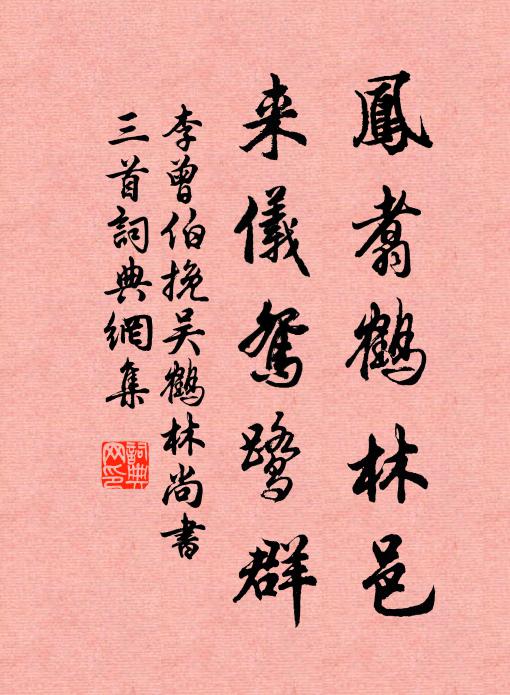 鳳翥鶴林邑
来儀鴛鷺群
李曾伯挽吴鶴林尚書
三首詞典網集
詞典網印